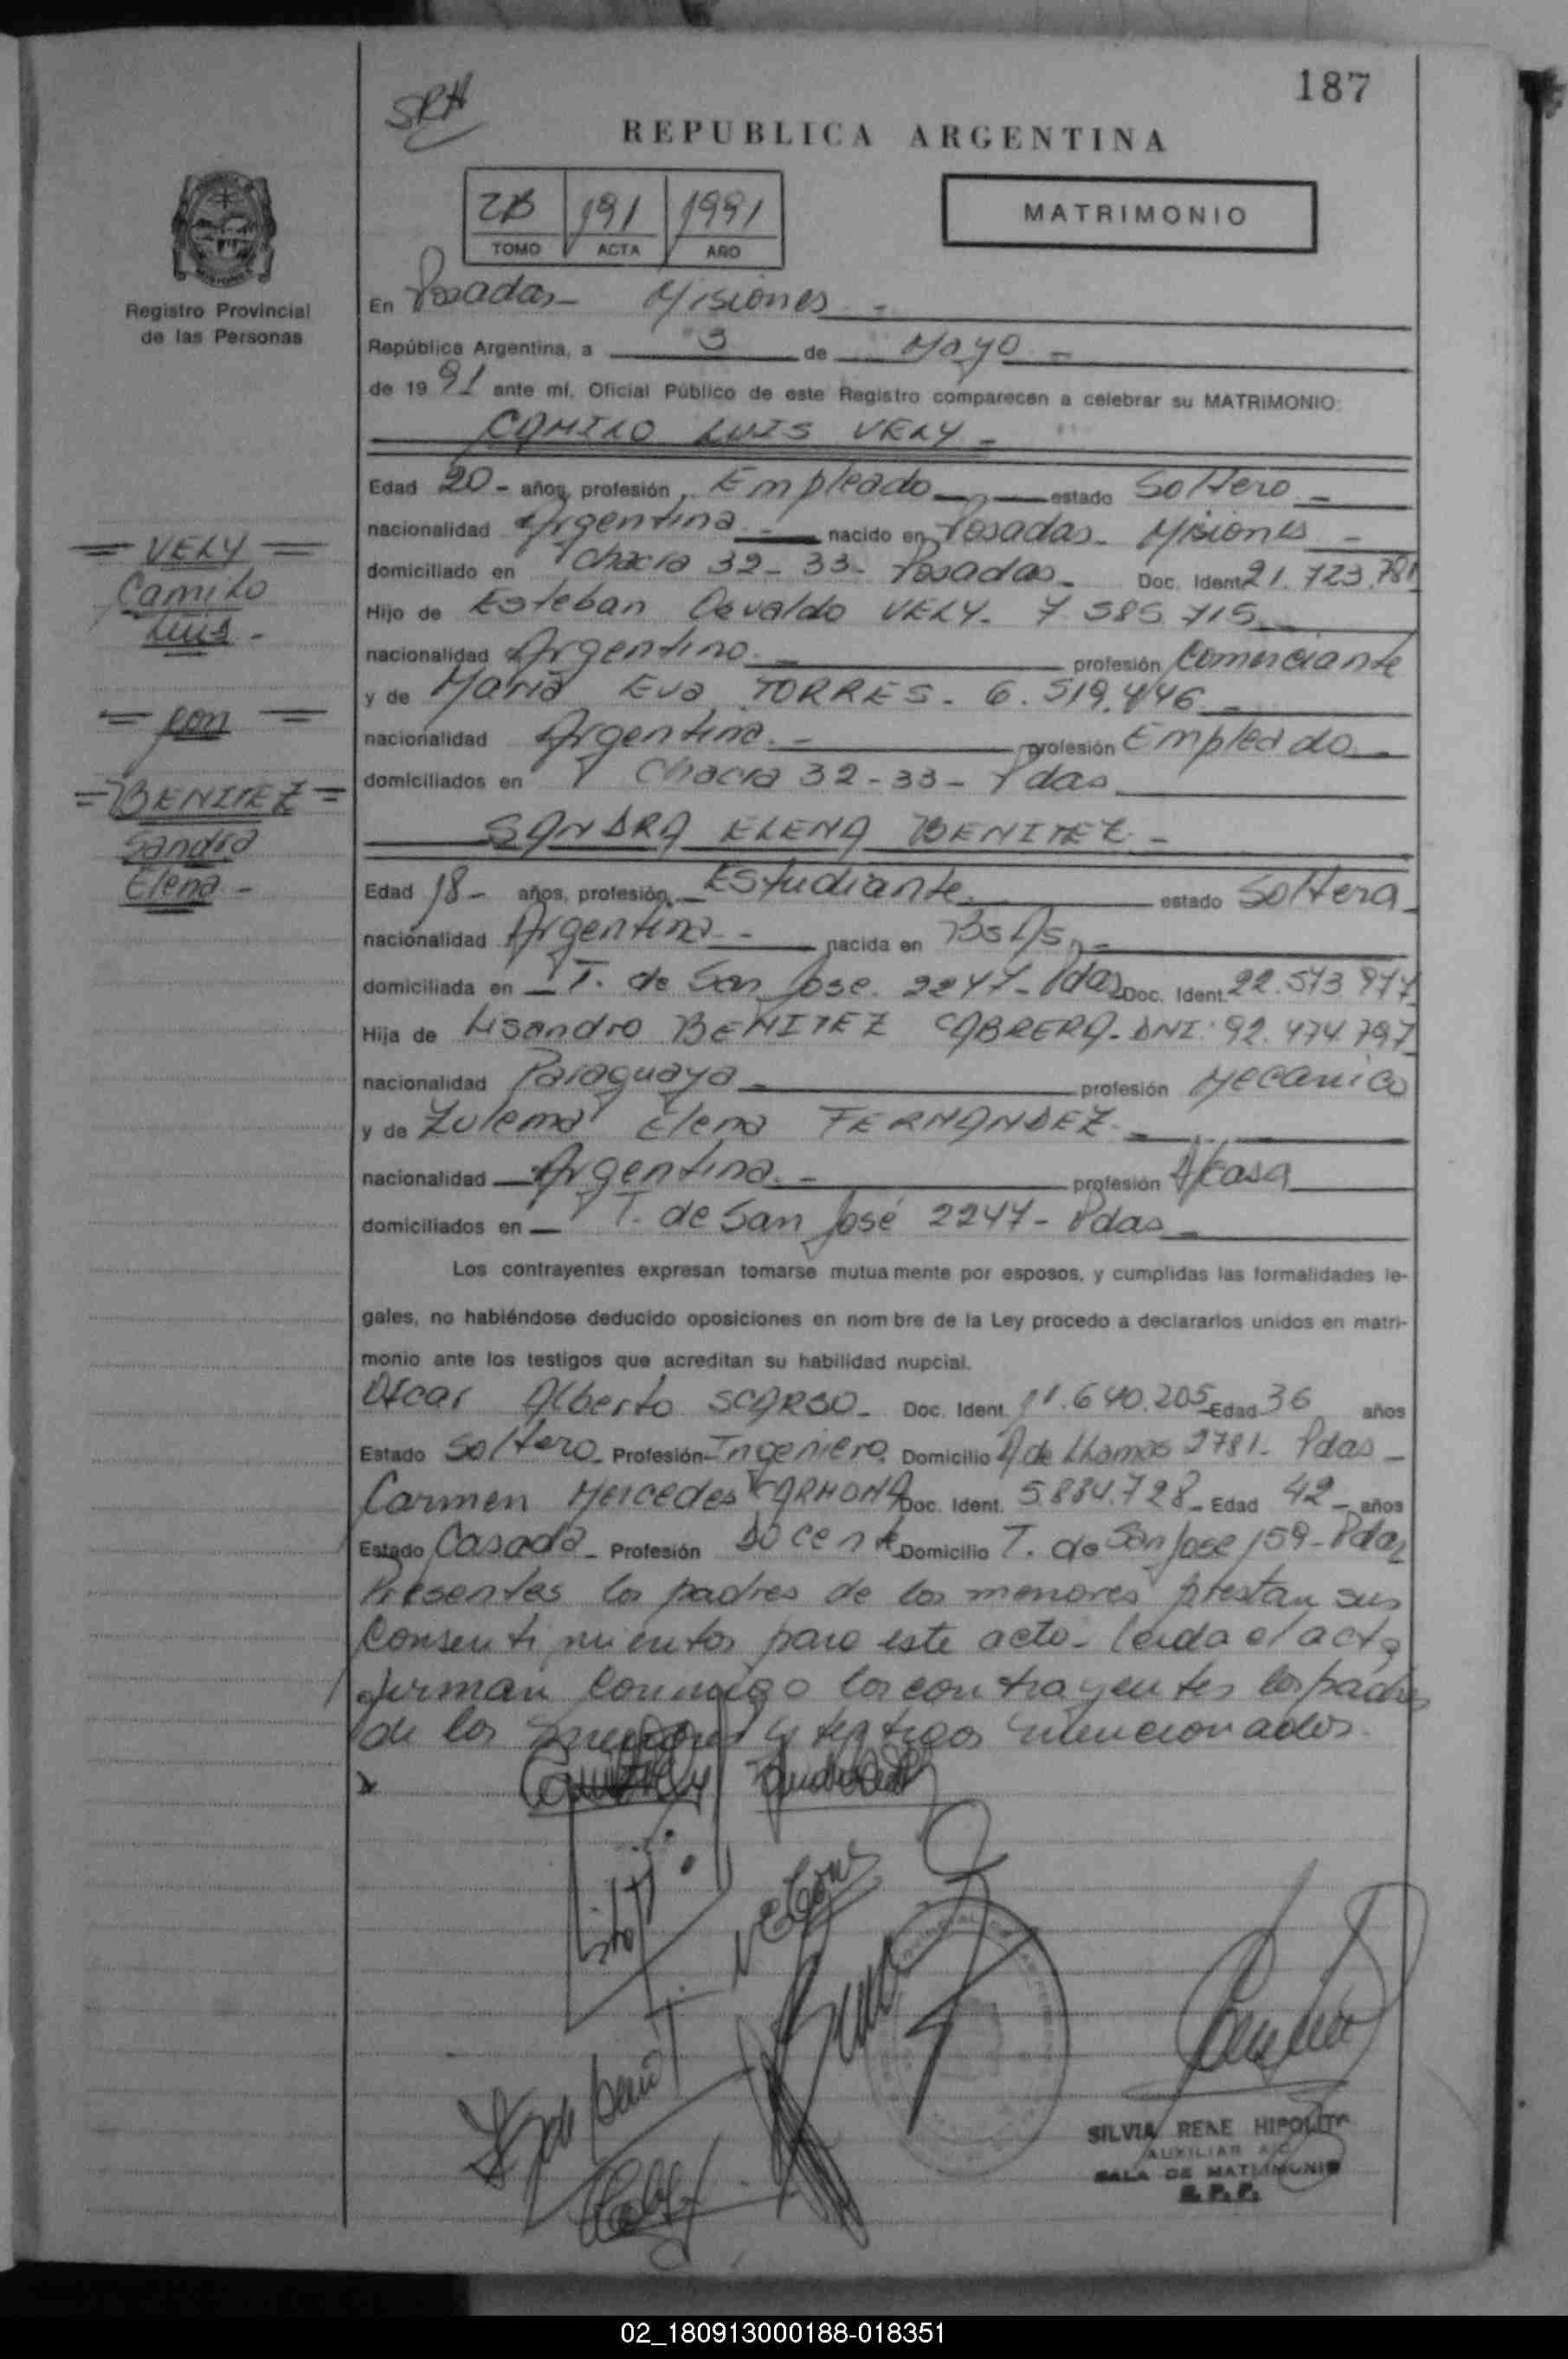 187
SRH
REPUBLICA ARGENTINA
2B 191 1991
TOMO ACTA AÑO
MATRIMONIO
Registro Provincial
de las Personas
En Posadas - Misiones -
República Argentina, a 3 de Mayo -
de 19 91 ante mí, Oficial Público de este Registro comparecen a celebrar su MATRIMONIO:
CAMILO LUIS VELY -
Edad 20 - años, profesión, Empleado - estado Soltero -
nacionalidad Argentina - nacido en Posadas - Misiones -
domiciliado en Chacra 32-33- Posadas - Doc. Ident. 21.723.781
Hijo de Esteban Osvaldo VELY - 7.585.715 -
nacionalidad Argentino - profesión Comerciante
y de María Eva TORRES - 6.519.446 -
nacionalidad Argentina - profesión Empleado -
domiciliados en Chacra 32-33- Pdas
SANDRA ELENA BENITEZ -
Edad 18 - años, profesión, Estudiante estado Soltera -
nacionalidad Argentina - nacida en Bs As -
domiciliada en T. de San Jose. 2247- Pdas Doc. Ident. 22.573.977
Hija de Lisandro BENITEZ CABRERA - DNI: 92.474.797
nacionalidad Paraguaya - profesión Mecanico
y de Zulema Elena FERNANDEZ -
nacionalidad Argentina - profesión A/casa
domiciliados en T. de San José 2247- Pdas -
Los contrayentes expresan tomarse mutua mente por esposos, y cumplidas las formalidades le-
gales, no habiéndose deducido oposiciones en nom bre de la Ley procedo a declararlos unidos en matri-
monio ante los testigos que acreditan su habilidad nupcial.
Oscar Alberto SCARSO - Doc. Ident. 11.640.205 - Edad 36 años
Estado Soltero - Profesión - Ingeniero Domicilio A de Lhamas 2781 - Pdas -
Carmen Mercedes CARMONA Doc. Ident. 5.884.728 - Edad 42 - años
Estado Casada - Profesión Docente Domicilio T. de San Jose 159 - Pdas
Presentes los padres de los menores prestan sus
consentimientos para este acto - Leida el acta
firman conmigo los contrayentes los padres
de los menores y testigos mencionados.
= VELY =
Camilo
Luis -
= con =
= BENITEZ =
Sandra
Elena -
SILVIA RENE HIPOLITO
AUXILIAR
SALA DE MATRIMONIO
R. P. P.
02_180913000188-018351